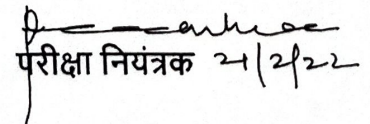 परीक्षा नियंत्रक 21/2/22